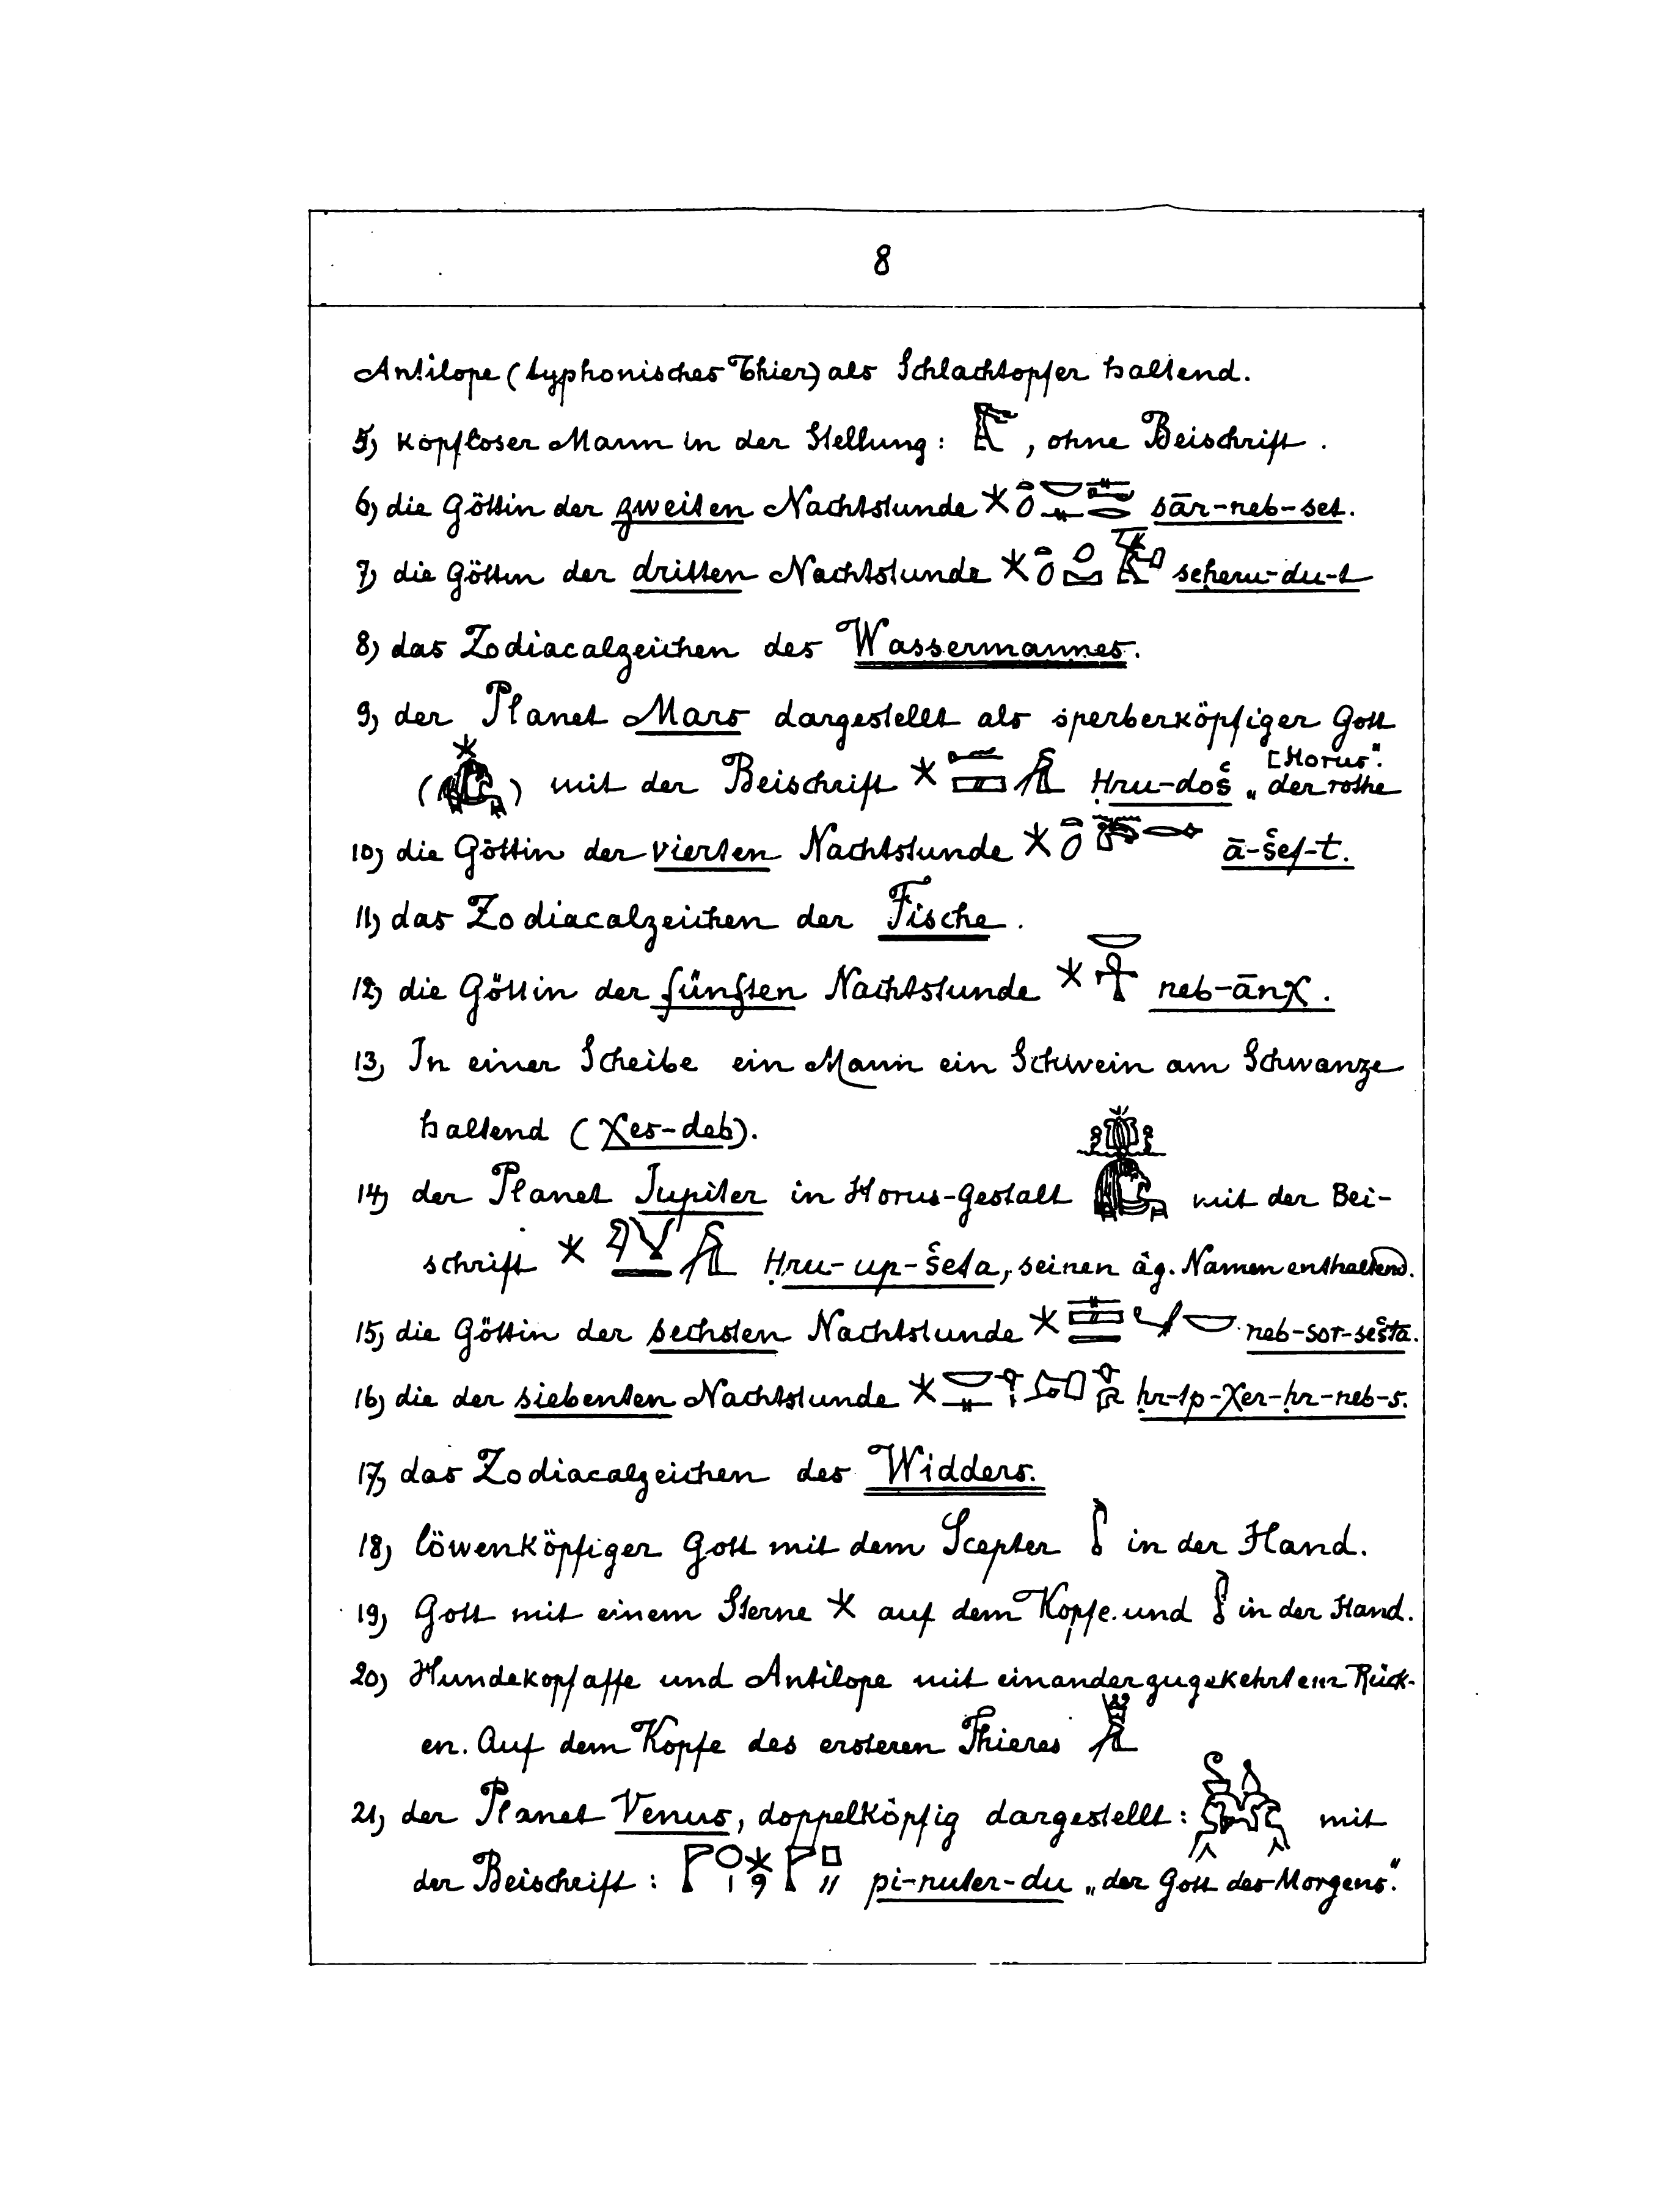 8
Antilope (typhonisches Thier) als Schlachtopfer haltend.
5) kopfloser Mann in der Stellung: , ohne Beischrift.
6) die Göttin der zweiten Nachtstunde sār-neb-set.
7) die Göttin der dritten Nachtstunde seḥeru-du-t
8) das Zodiacalzeichen des Wassermannes.
9) der Planet Mars dargestellt als sperberköpfiger Gott
( ) mit der Beischrift Ḥru-doš „der rothe [Horus“.
10) die Göttin der vierten Nachtstunde ā-šef-t.
11) das Zodiacalzeichen der Fische.
12) die Göttin der fünften Nachtstunde neb-ānχ.
13) In einer Scheibe ein Mann ein Schwein am Schwanze
haltend (χes-deb).
14) der Planet Jupiter in Horus-Gestalt mit der Bei-
schrift Ḥru-up-šeta, seinen äg. Namen enthaltend.
15) die Göttin der sechsten Nachtstunde neb-sor-sešta.
16) die der siebenten Nachtstunde ḥr-tp-χer-ḥr-neb-s.
17) das Zodiacalzeichen des Widders.
18) löwenköpfiger Gott mit dem Scepter in der Hand.
19) Gott mit einem Sterne auf dem Kopfe und in der Hand.
20) Hundekopfaffe und Antilope mit einander zugekehrtem Rück-
en. Auf dem Kopfe des ersteren Thieres
21) der Planet Venus, doppelköpfig dargestellt: mit
der Beischrift: pi-nuter-du „der Gott des Morgens“.